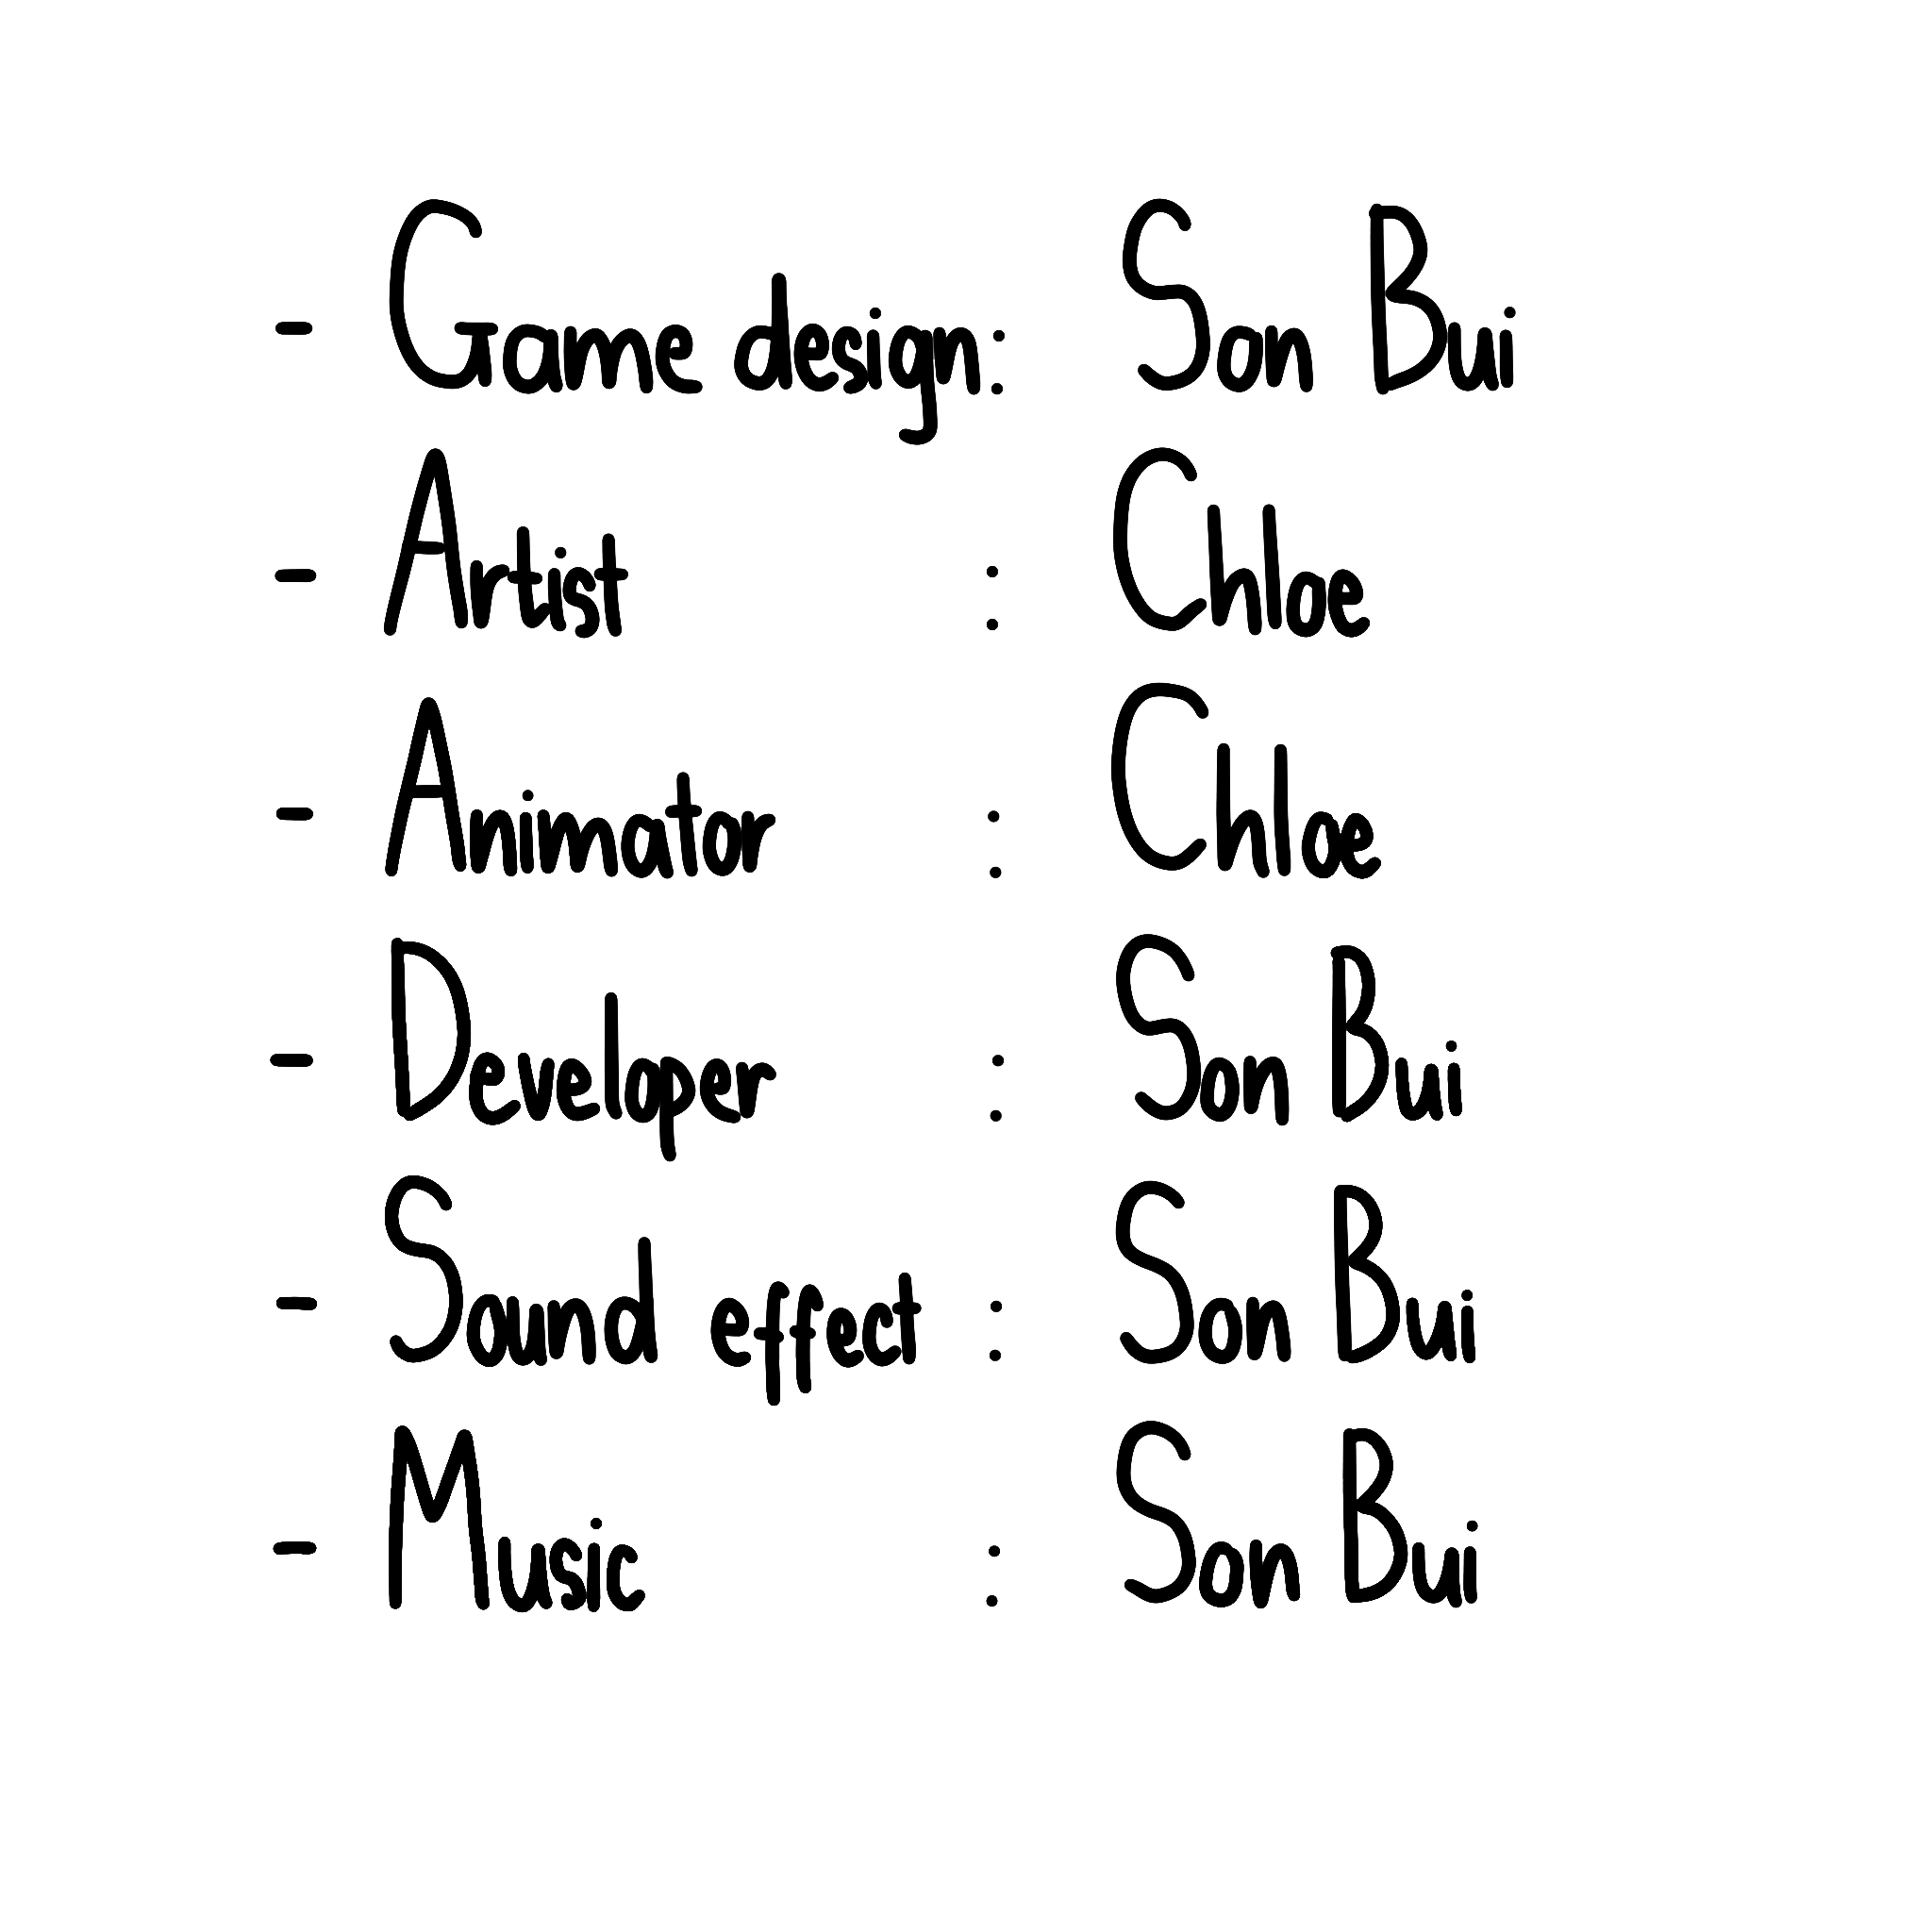 - Game design: Son Bui
- Artist : Chloe
- Animator : Chloe
- Developer : Son Bui
- Sound effect : Son Bui
- Music : Son Bui